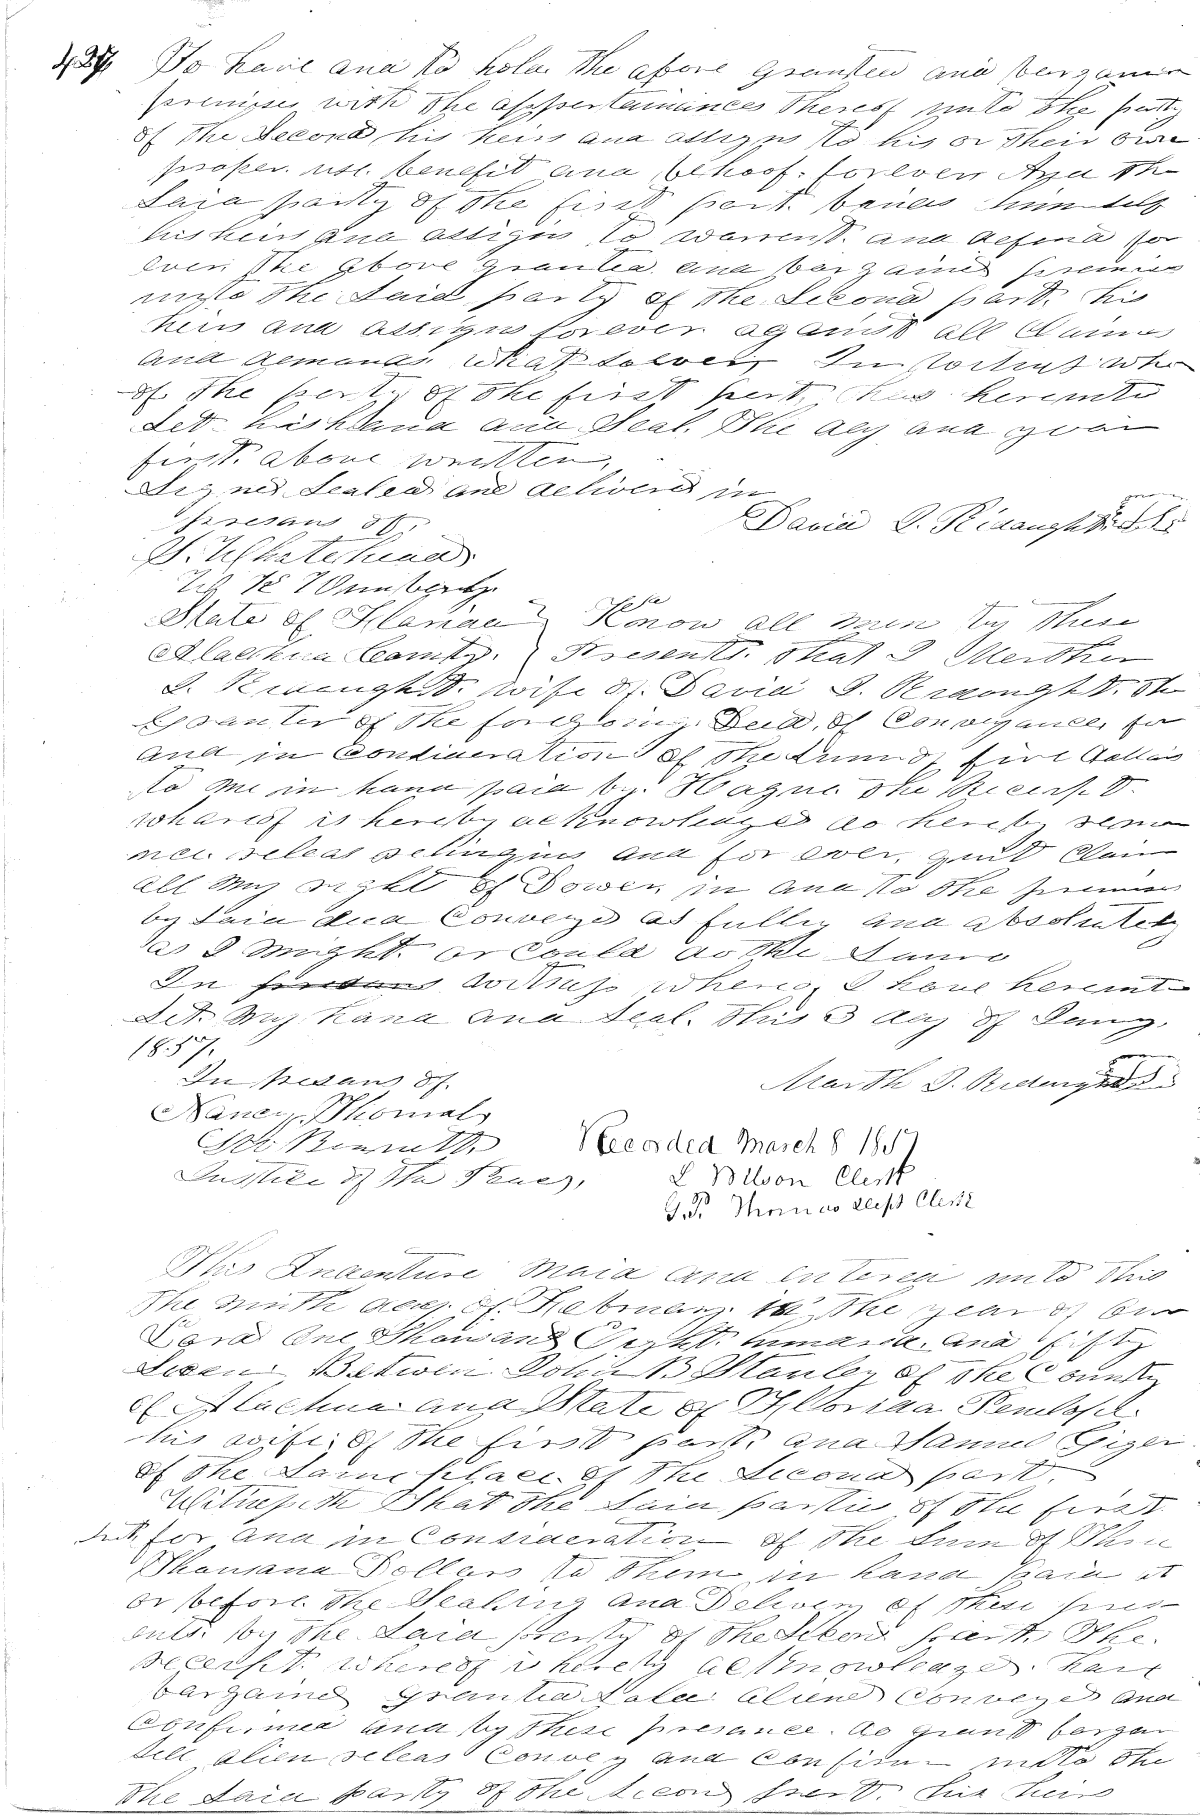 427 To have and to hold the above granted and bargain
premises with the appertainances thereof unto the party
of the Second his heirs and assigns to his or their own
proper use benefit and behoof forever And the
Said party of the first part binds him self
his heirs and assigns to warrent and defend for
ever the above granted and bargained premises
unto the Said party of the Second part his
heirs and assigns forever against all Claimes
and demands what soever In Witness whe
of the party of the first part has hereunto
Set his hand and Seal the day and year
first above written
Signed Sealed and delivered in
presans of
David S. Ridaught L.S.
S. Whitehead
State of Florida Know all men by these
Alachua County Presents that I
S. Ridaught wife of David S. Ridought the
Granter of the foregoing Deed of Conveyance for
and in Consideration of the Sum of five dollars
to me in hand paid by Hague the Receipt
whareof is hereby acknowledged do hereby renou
nce releas relinquis and for ever quit Claim
all my right of Dower in and to the premises
by Said deed Conveyed as fully and absolutely
as I might or Could do the Same
In presans witness whereof I have hereunt
Set my hand and Seal this 3 day of Jany
1857.
In presans of
Marth S. Ridaught
Nancy Thomas
Bennett
Justice of the Peace,
Recorded March 8 1857
L Wilson Clerk
G.P. Thomas Dept Clerk
This Indenture maid and entered unto this
The ninth day of February in the year of our
Lord One Thousand Eight hundred and fifty
Seven Between John B Stanley of the County
of Alachua and State of Florida Penelope
his wife of the first part and Samuel Geiger
of the Same place of the Second part
Witnesseth That the Said parties of the first
part for and in Consideration of the Sum of Three
Thousand Dollars to them in hand paid at
or before the Sealing and Delivery of these pres
ents by the Said party of the Second part The
receipt whereof is hereby acknowledged have
bargained granted Sold aliened Conveyed and
Confirmed and by these presance do grant bargan
Sell alien releas Convey and Confirm unto the
the Said party of the Second part his heirs